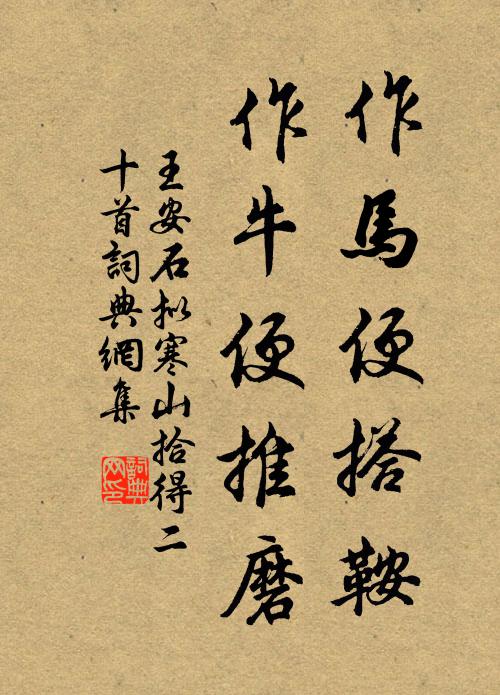 作馬便搭鞍
作牛便推磨
王安石拟寒山拾得二
十首詞典網集
詞典
网印